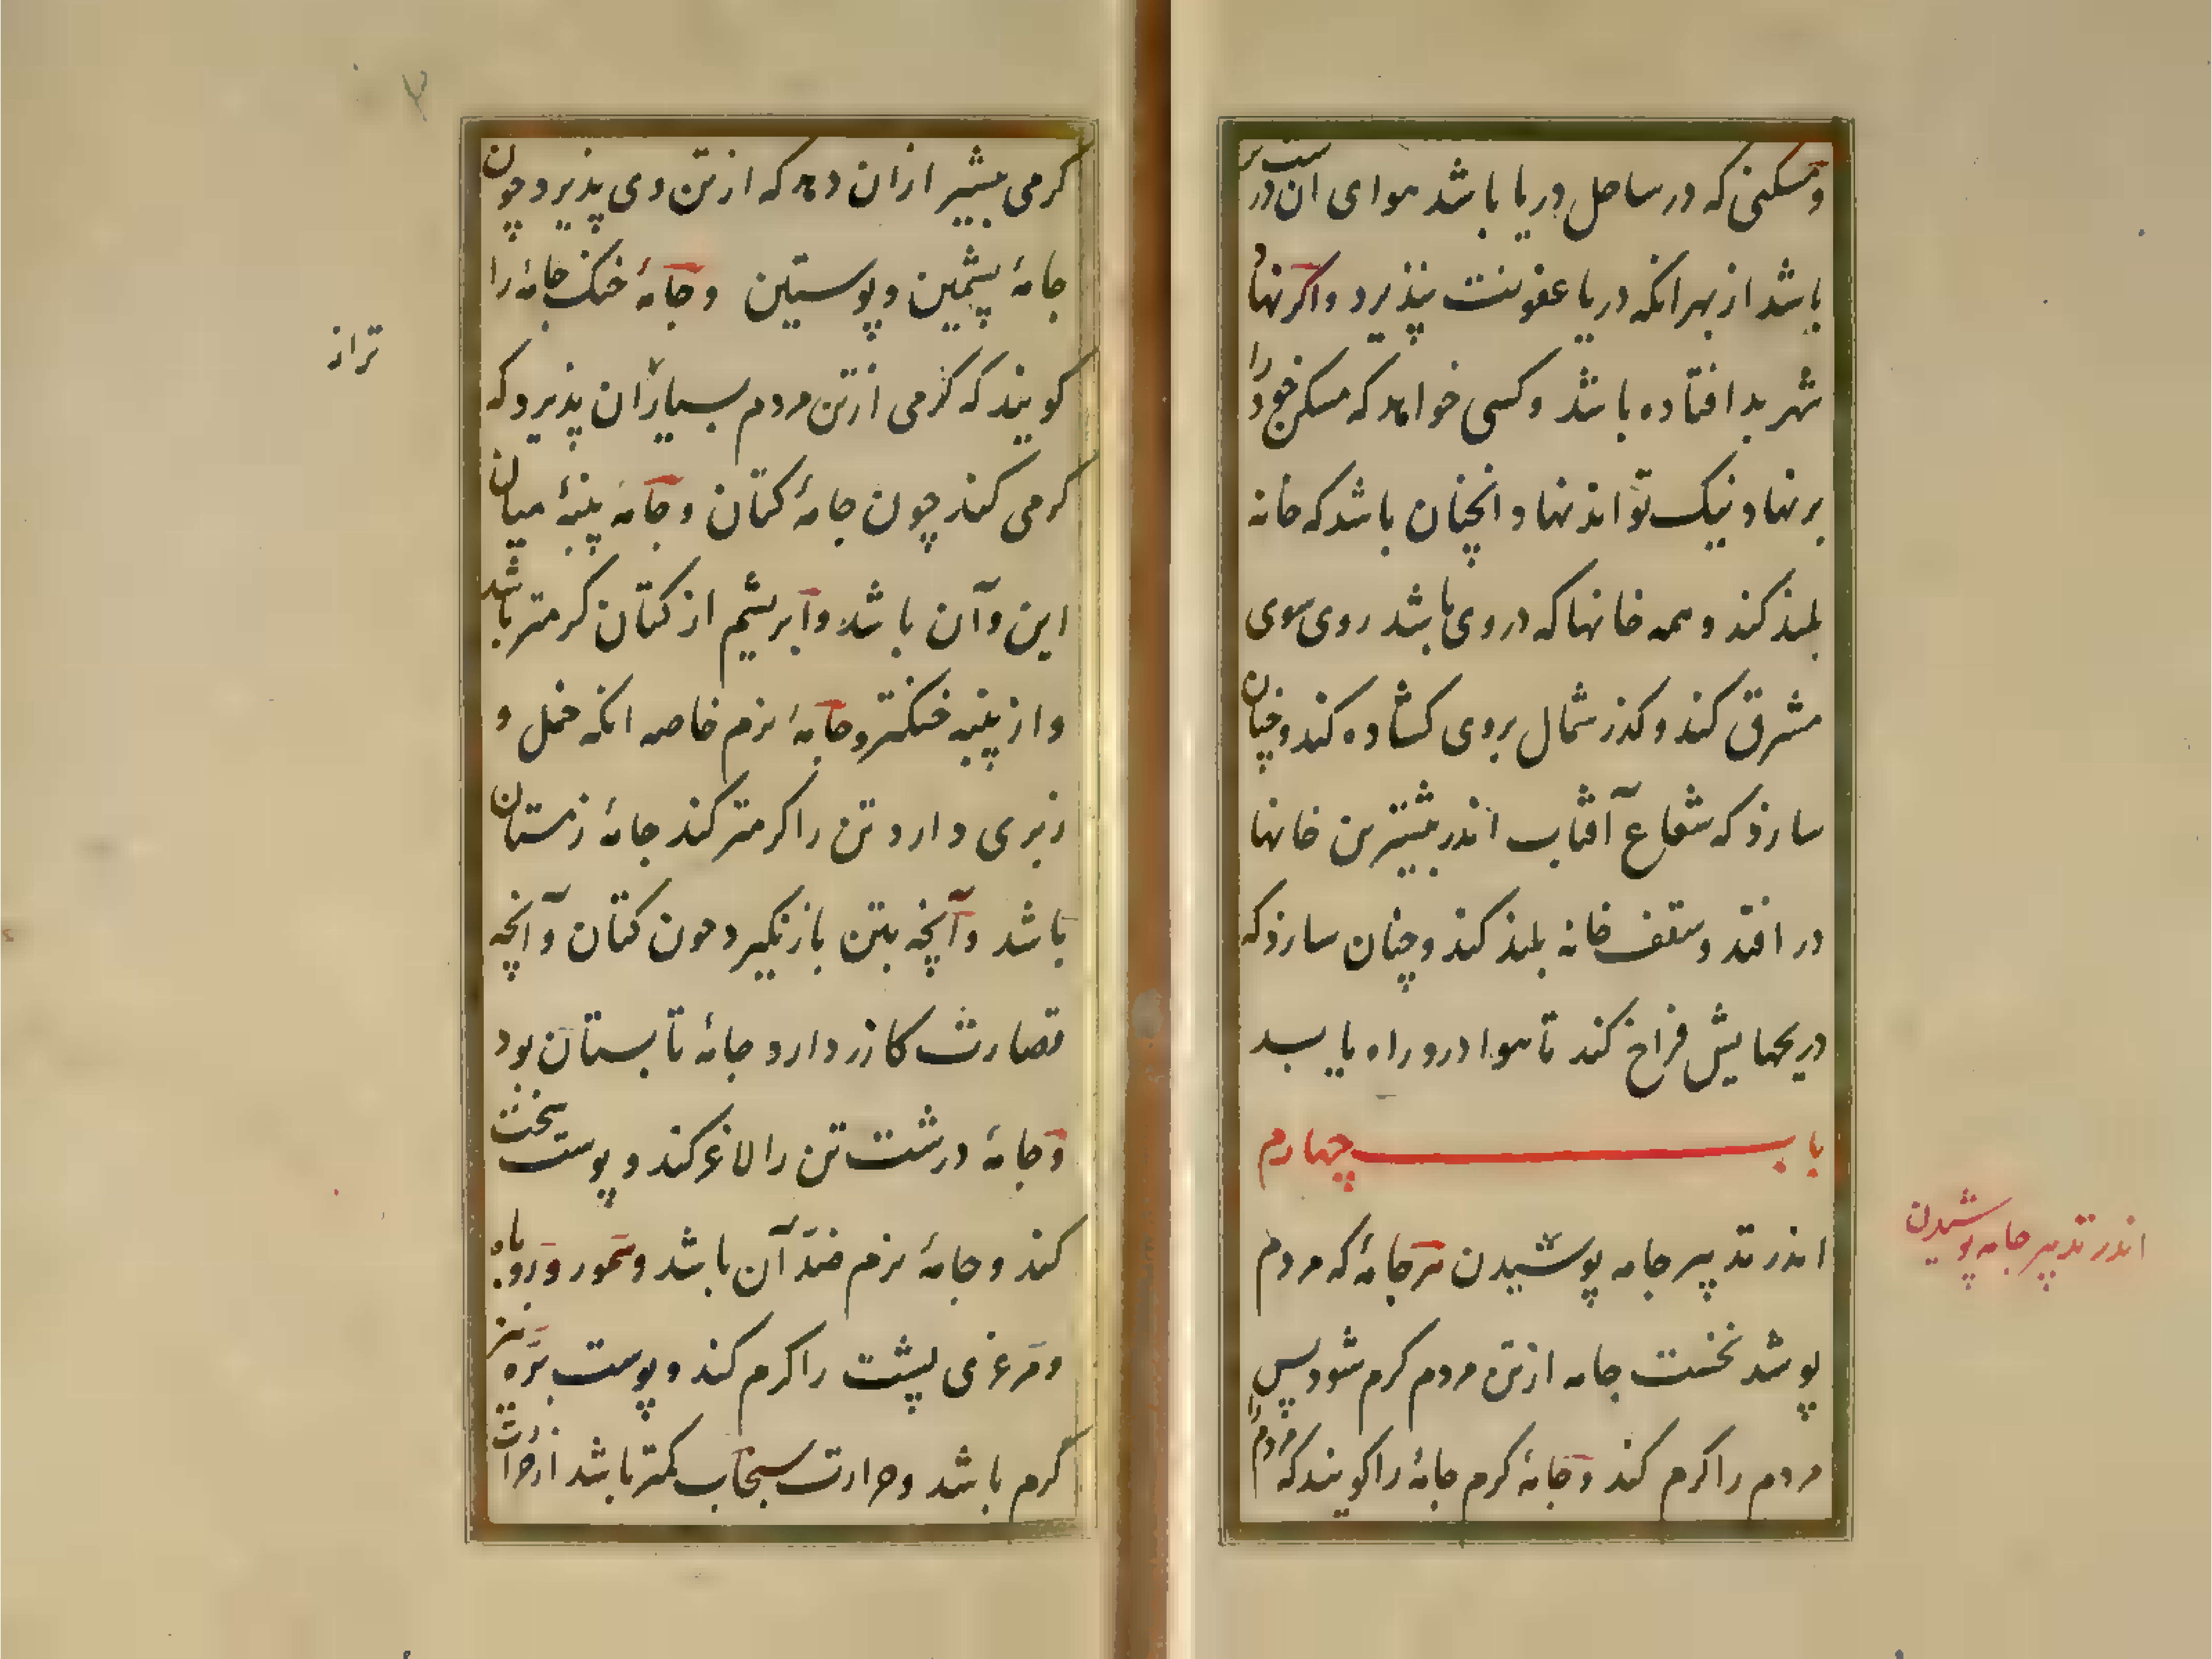 ومسکنی که در ساحل دریا باشد هوای آن درست‌تر
باشد از بهر انکه دریا عفونت نپذیرد واکر نهاد
شهر بد افتاده باشد وکسی خواهد که مسکن خود را
بر نهاد نیک تواند نهاد انچنان باشد که خانه
بلند کند و همه خانها که در وی باشد روی سوی
مشرق کند وکذر شمال بروی کشاده کند وچنان
سازد که شعاع آفتاب اندر بیشترین خانها
در افتد وسقف خانه بلند کند وچنان سازد که
دریچهایش فراخ کند تا هوا درو راه یابد
باب چهارم
اندر تدبیر جامه پوشیدن هر جامۀ که مردم
پوشد نخست جامه از تن مردم کرم شود پس
مردم را کرم کند وجامۀ کرم جامۀ را کویند که مردم را
اندر تدبیر جامه پوشیدن
کرمی بیشتر ازان دهد که از تن وی پذیرد چون
جامۀ پشمین وپوستین وجامۀ خنک جامۀ را
کویند که کرمی از تن مردم بسیار ازان پذیرد که
کرمی کند چون جامۀ کتان وجامۀ پنبۀ میان
این وآن باشد وابریشم از کتان کرمتر باشد
واز پنبه خنکتر وجامۀ نرم خاصه انکه خمل و
زبری دارد تن را کرمتر کند جامۀ زمستان
باشد وآنچه بتن باز نکیرد چون کتان وآنچه
قصارت کازر دارد جامۀ تابستان بود
وجامۀ درشت تن را لاغر کند و پوست سخت
کند وجامۀ نرم ضدّ آن باشد وسمور وروباه
ومرغزی پشت را کرم کند وپوست بره نیز
کرم باشد وحرارت سنجاب کمتر باشد از حرارت